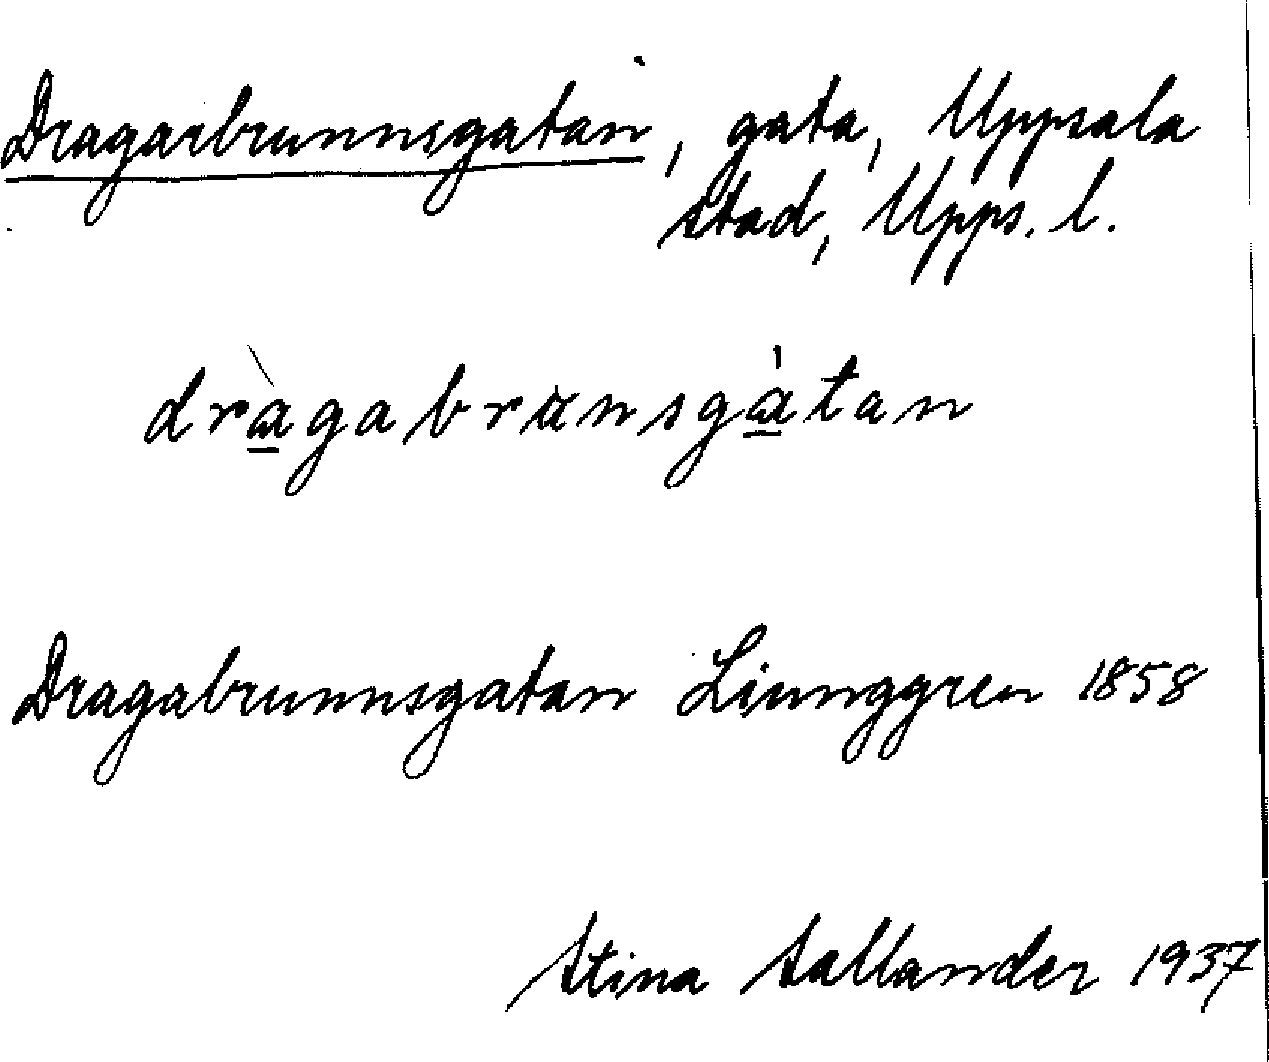 Dragarbrunnsgatan, gata, Uppsala
stad, Upps. l.
dràgabrunsgàtan
Dragabrunnsgatan Liunggren 1858
Stina Sallander 1937